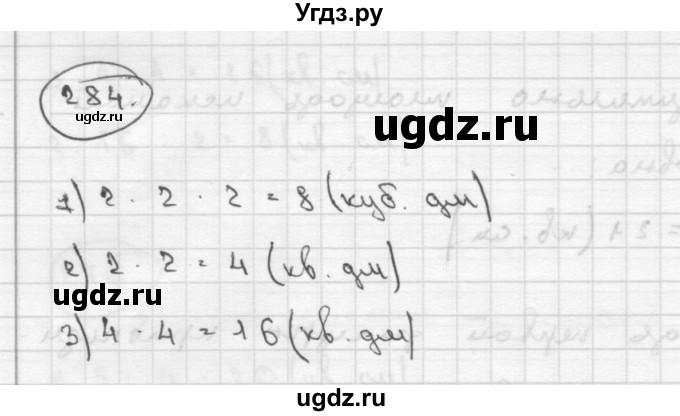 Угдз.ру
284.
ugdz.ru
ugdz.ru
1) 2 · 2 · 2 = 8 (куб. дм)
2) 2 · 2 = 4 (кв. дм)
ugdz.ru
3) 4 · 4 = 16 (кв. дм)
ugdz.ru